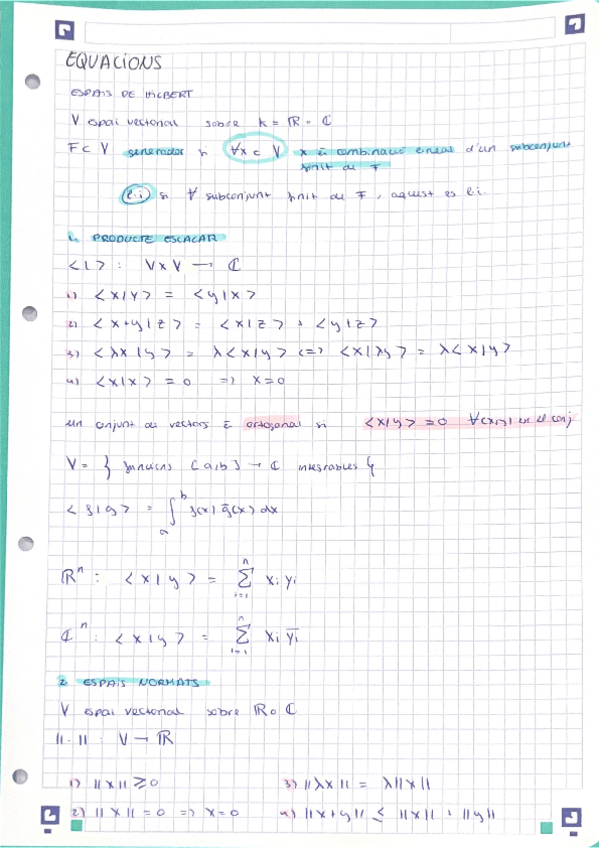 EQUACIONS
ESPAIS DE HILBERT
V espai vectorial sobre K = ℝ o ℂ
F ⊂ V generador si ∀x ∈ V x és combinació lineal d'un subconjunt
finit de F
l.i si ∀ subconjunt finit de F, aquest es l.i.
1. PRODUCTE ESCALAR
< | > : V×V → ℂ
1) <x|y> = <y|x>
2) <x+y|z> = <x|z> + <y|z>
3) <λx|y> = λ<x|y> <=> <x|λy> = λ<x|y>
4) <x|x> = 0 => x=0
un conjunt de vectors és ortogonal si <x|y> = 0 ∀(x,y) en el conj
V = { funcions [a,b] → ℂ integrables }
<f|g> = ∫_a^b f(x) g̅(x) dx
ℝⁿ : <x|y> = Σ_{i=1}^n xᵢ yᵢ
ℂⁿ : <x|y> = Σ_{i=1}^n xᵢ y̅ᵢ
2. ESPAIS NORMATS
V espai vectorial sobre ℝ o ℂ
||·|| : V → ℝ
1) ||x|| ≥ 0 3) ||λx|| = λ||x||
2) ||x|| = 0 => x=0 4) ||x+y|| ≤ ||x|| + ||y||